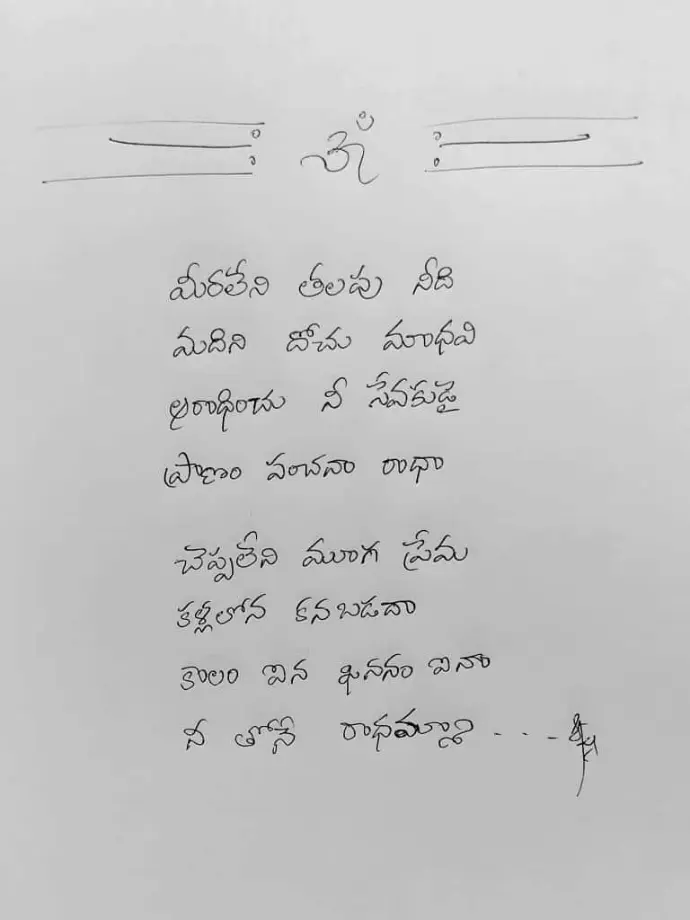 ఓం
మీరలేని తలపు నీది
మదిని దోచు మాధవి
ఆరాధించు నీ సేవకుడై
ప్రాణం పంచనా రాధా
చెప్పలేని మూగ ప్రేమ
కళ్లలోన కనబడదా
కాలం ఐన జననం ఐనా
నీ తోనే